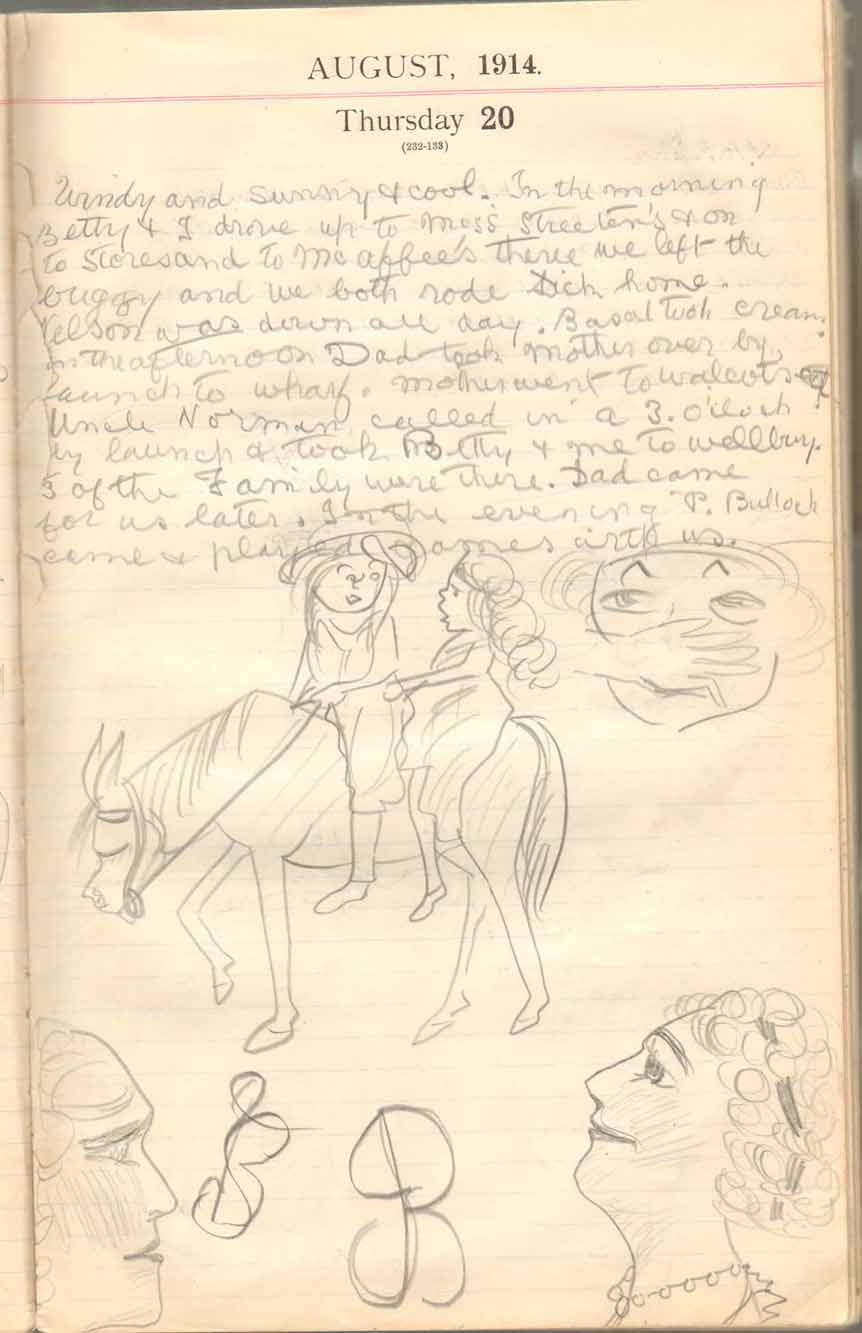 AUGUST, 1914.
Thursday 20
(232-133)
Windy and sunny & cool. In the morning
Betty & I drove up to Miss Streeten's & on
to Stores and to Mc affee's there we left the
buggy and we both rode Dick home.
Nelson was down all day. Basal took cream.
In the afternoon Dad took mother over by
launch to wharf. Mother went to walcots
Uncle Norman called in a 3. o'cloch
by launch & took Betty & me to wellbury.
3 of the Family were there. Dad came
for us later. In the evening P. Bulloch
came & played games with us.